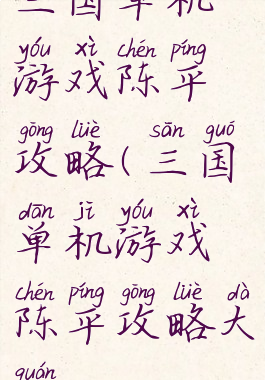 三国单机
yóu xì chén píng
游戏陈平
gōng lüè sān guó
攻略(三国
dān jī yóu xì
单机游戏
chén píng gōng lüè dà
陈平攻略大
quán